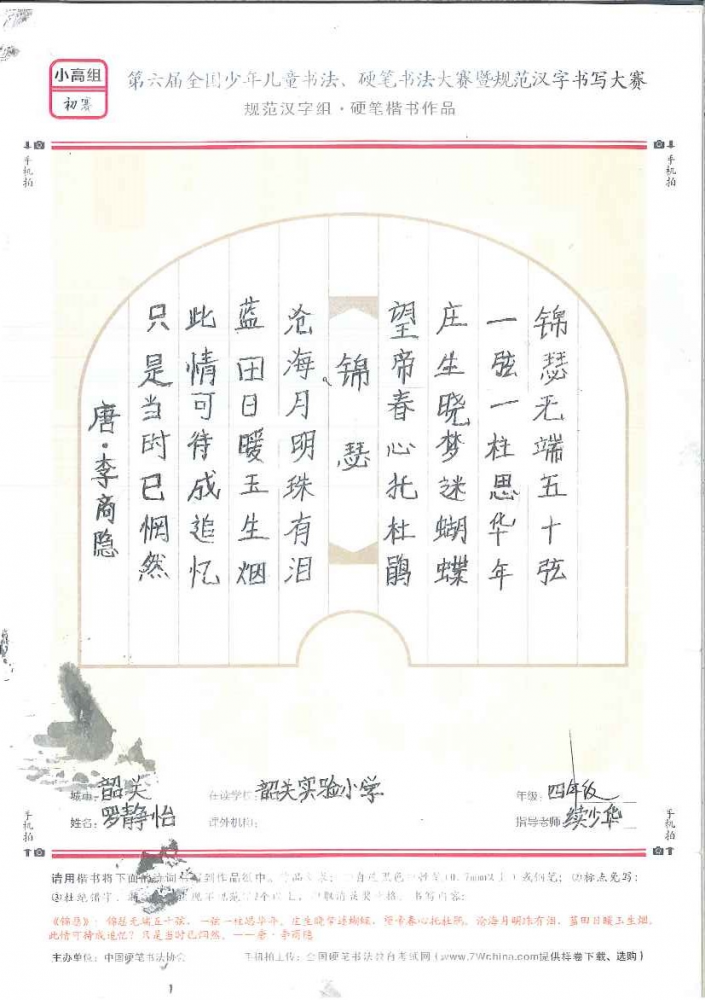 小高组
初赛
第六届全国少年儿童书法、硬笔书法大赛暨规范汉字书写大赛
规范汉字组·硬笔楷书作品
手机拍
手机拍
锦瑟无端五十弦
一弦一柱思华年
庄生晓梦迷蝴蝶
望帝春心托杜鹃
锦瑟
沧海月明珠有泪
蓝田日暖玉生烟
此情可待成追忆
只是当时已惘然
唐·李商隐
城市：韶关
在读学校：韶关实验小学
年级：四年级
姓名：罗静怡
课外机构：
指导老师 续少华
手机拍
手机拍
请用楷书将下面的诗词 写到作品纸中。 黑色 (0.7mm以上）或钢笔；②标点免写；
③杜绝错字， 2个以上， 取消获奖资格。书写内容：
《锦瑟》：锦瑟无端五十弦，一弦一柱思华年。庄生晓梦迷蝴蝶，望帝春心托杜鹃。沧海月明珠有泪，蓝田日暖玉生烟。
此情可待成追忆？只是当时已惘然。——唐·李商隐
主办单位：中国硬笔书法协会
手机拍上传：全国硬笔书法教育考试网（www.7Wchina.com提供样卷下载、选购）